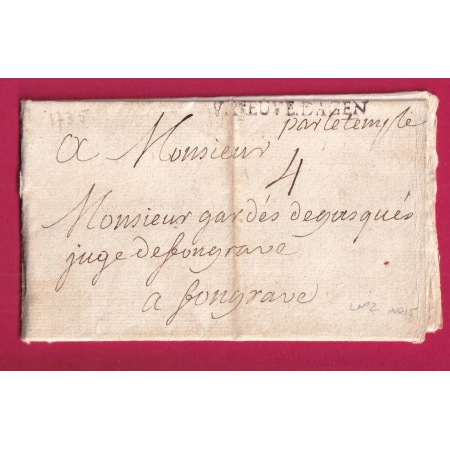 1735
V.NEUVE.DAGEN
par le temple
A Monsieur
4
Monsieur gardés degasqués
juge defongrave
a fongrave